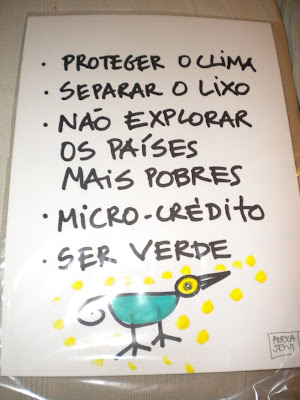 · PROTEGER O CLIMA
· SEPARAR O LIXO
· NÃO EXPLORAR
OS PAÍSES
MAIS POBRES
· MICRO-CRÉDITO
· SER VERDE